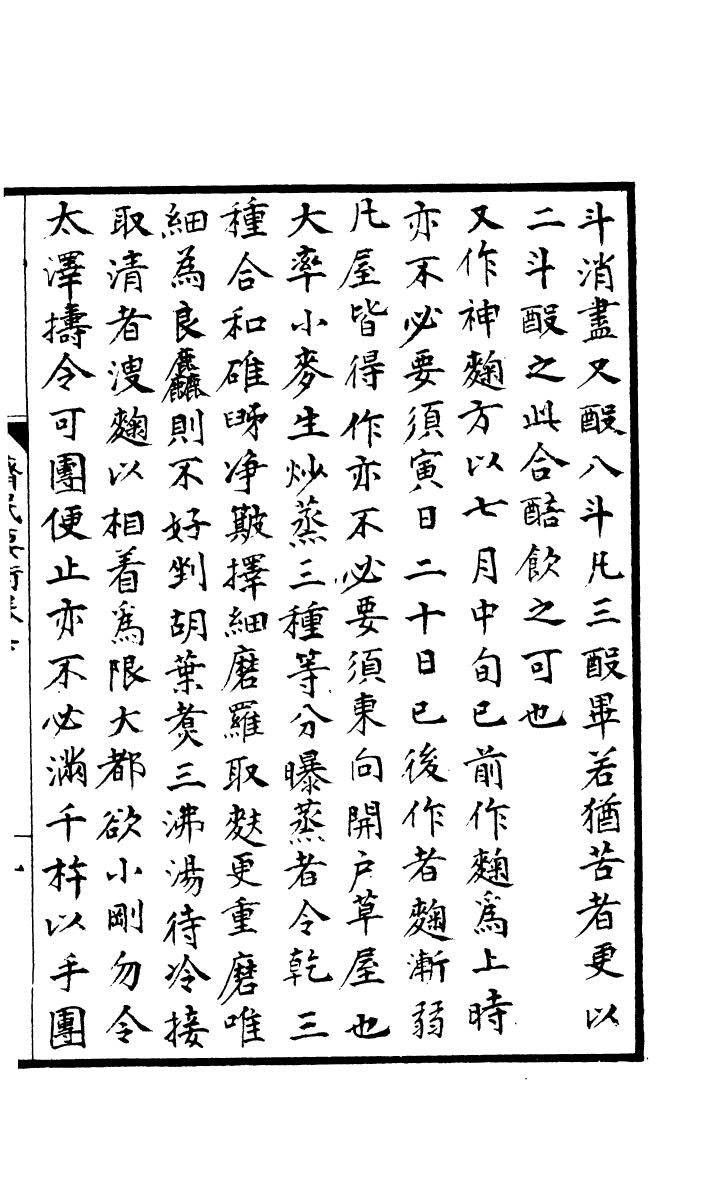 斗消盡又酘八斗凡三酘畢若猶苦者更以
二斗酘之此合醅飲之可也
又作神麴方以七月中旬已前作麴爲上時
亦不必要須寅日二十日已後作者麴漸弱
凡屋皆得作亦不必要須東向開户草屋也
大率小麥生炒蒸三種等分曝蒸者令乾三
種合和碓䏶净簸擇細磨羅取麩更重磨唯
細為良麤則不好剉胡葉煑三沸湯待冷接
取清者溲麴以相着爲限大都欲小剛勿令
太澤擣令可團便止亦不必滿千杵以手團
齊民要術卷七